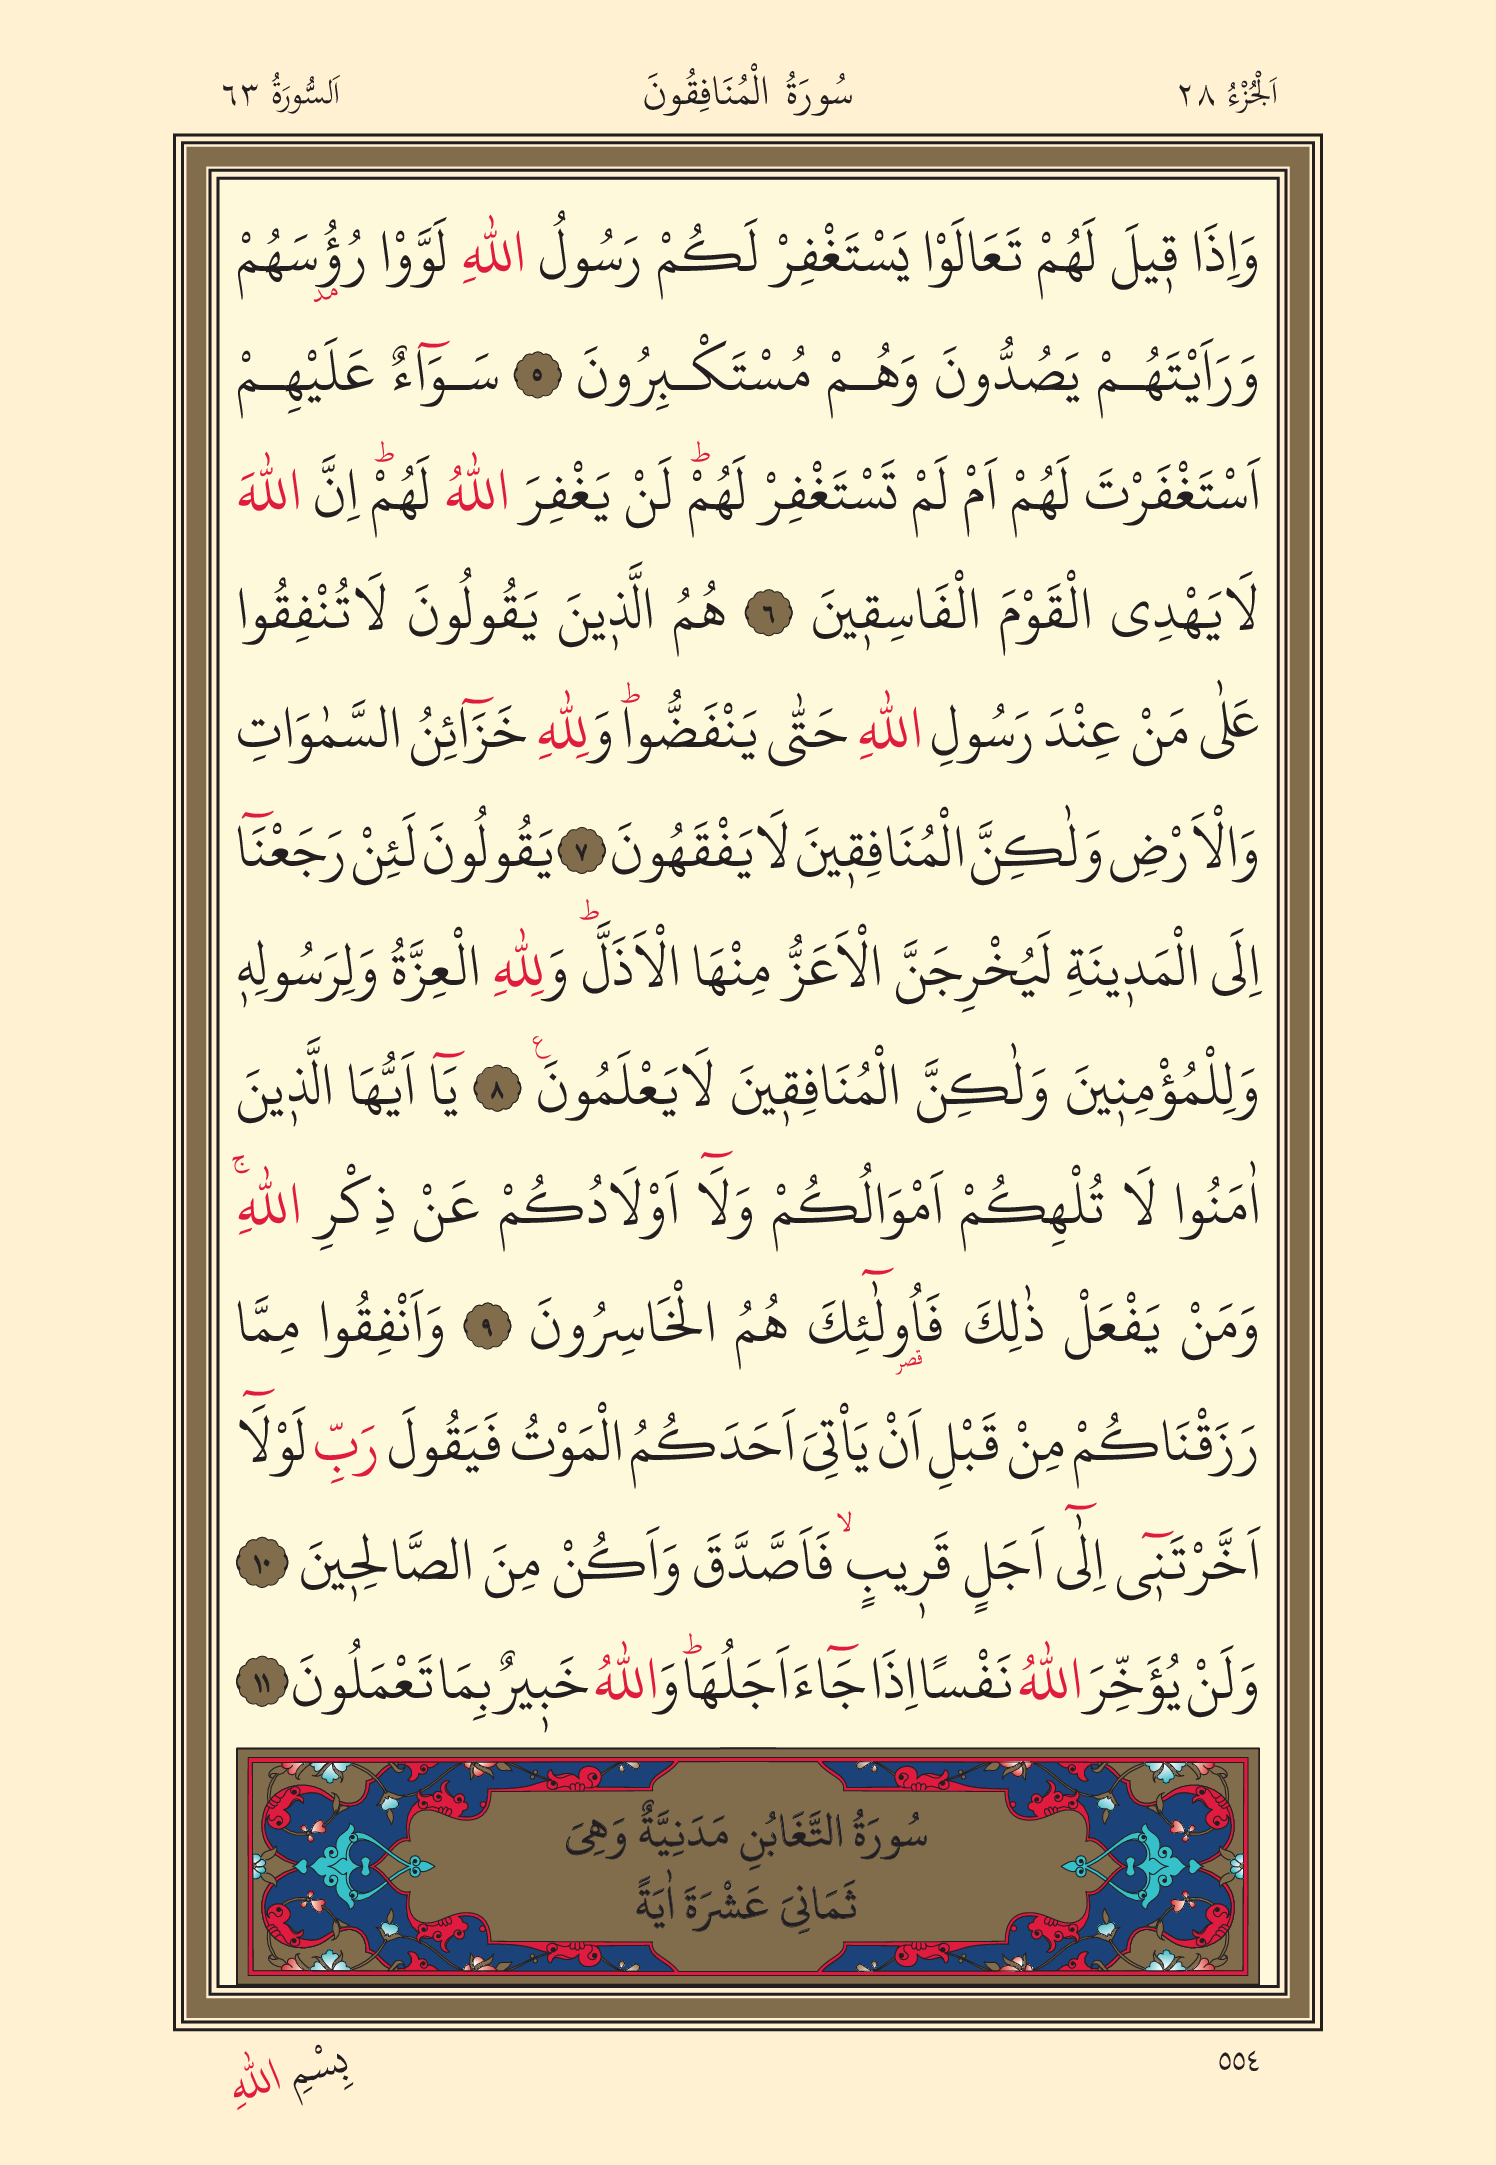 اَلْجُزْءُ ٢٨ سُورَةُ الْمُنَافِقُونَ اَلسُّورَةُ ٦٣
وَاِذَا ق۪يلَ لَهُمْ تَعَالَوْا يَسْتَغْفِرْ لَكُمْ رَسُولُ اللّٰهِ لَوَّوْا رُؤُ۫سَهُمْ مد
وَرَاَيْتَهُمْ يَصُدُّونَ وَهُمْ مُسْتَكْبِرُونَ ٥ سَوَٓاءٌ عَلَيْهِمْ
اَسْتَغْفَرْتَ لَهُمْ اَمْ لَمْ تَسْتَغْفِرْ لَهُمْۜ لَنْ يَغْفِرَ اللّٰهُ لَهُمْۜ اِنَّ اللّٰهَ
لَا يَهْدِى الْقَوْمَ الْفَاسِق۪ينَ ٦ هُمُ الَّذ۪ينَ يَقُولُونَ لَا تُنْفِقُوا
عَلٰى مَنْ عِنْدَ رَسُولِ اللّٰهِ حَتّٰى يَنْفَضُّواۜ وَلِلّٰهِ خَزَٓائِنُ السَّمٰوَاتِ
وَالْاَرْضِ وَلٰكِنَّ الْمُنَافِق۪ينَ لَا يَفْقَهُونَ ٧ يَقُولُونَ لَئِنْ رَجَعْنَٓا
اِلَى الْمَد۪ينَةِ لَيُخْرِجَنَّ الْاَعَزُّ مِنْهَا الْاَذَلَّۜ وَلِلّٰهِ الْعِزَّةُ وَلِرَسُولِه۪
وَلِلْمُؤْمِن۪ينَ وَلٰكِنَّ الْمُنَافِق۪ينَ لَا يَعْلَمُونَ ع ٨ يَٓا اَيُّهَا الَّذ۪ينَ
اٰمَنُوا لَا تُلْهِكُمْ اَمْوَالُكُمْ وَلَٓا اَوْلَادُكُمْ عَنْ ذِكْرِ اللّٰهِۚ
وَمَنْ يَفْعَلْ ذٰلِكَ فَاُو۬لٰٓئِكَ هُمُ الْخَاسِرُونَ ٩ وَاَنْفِقُوا مِمَّا قصر
رَزَقْنَاكُمْ مِنْ قَبْلِ اَنْ يَاْتِىَ اَحَدَكُمُ الْمَوْتُ فَيَقُولَ رَبِّ لَوْلَٓا
اَخَّرْتَن۪ٓى اِلٰٓى اَجَلٍ قَر۪يبٍۙ فَاَصَّدَّقَ وَاَكُنْ مِنَ الصَّالِح۪ينَ ١٠
وَلَنْ يُؤَخِّرَ اللّٰهُ نَفْسًا اِذَا جَٓاءَ اَجَلُهَاۜ وَاللّٰهُ خَب۪يرٌ بِمَا تَعْمَلُونَ ١١
سُورَةُ التَّغَابُنِ مَدَنِيَّةٌ وَهِىَ
ثَمَانِىَ عَشْرَةَ اٰيَةً
٥٥٤ بِسْمِ اللّٰهِ